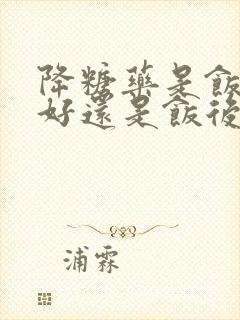 降糖藥是飯
好還是飯後
浦霖